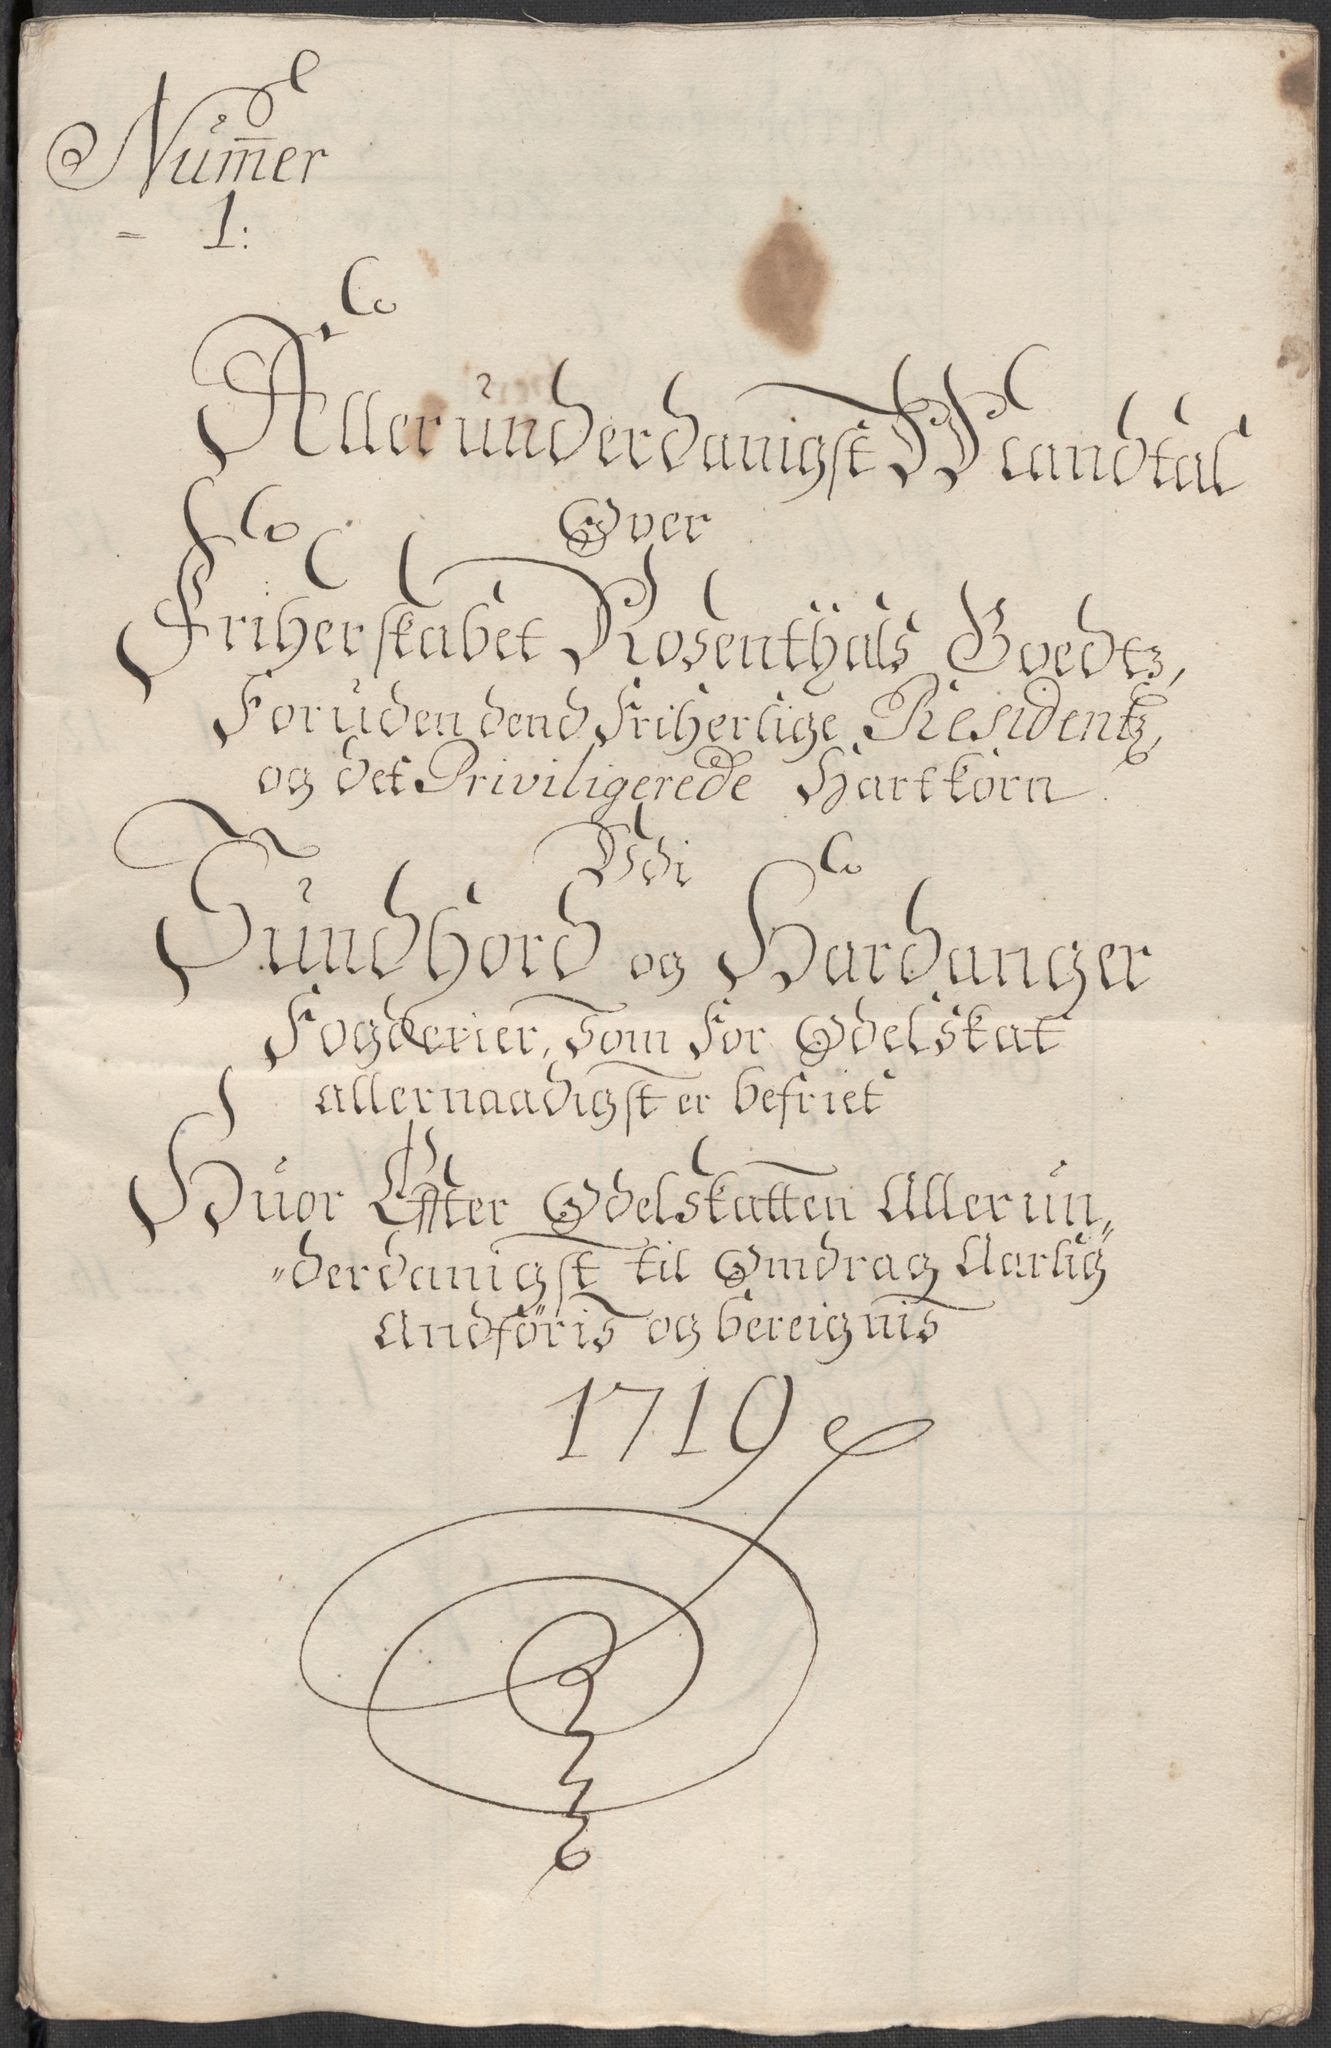 Num̅er
= 1:
Allerunderdanigst Mandtal
Over
Friherskabet Rosenthals Goedtz,
Foruden dend Friherlige Residentz,
og det Priviligerede Hartkorn
Vdi
Sundhord og Hardanger
Fogderier, som for Odelskat
allernaadigst er befriet
Huor Effter Odelskatten Allerun„
„derdanigst til Omdrag Aarlig
Andföris og bereignis
1719